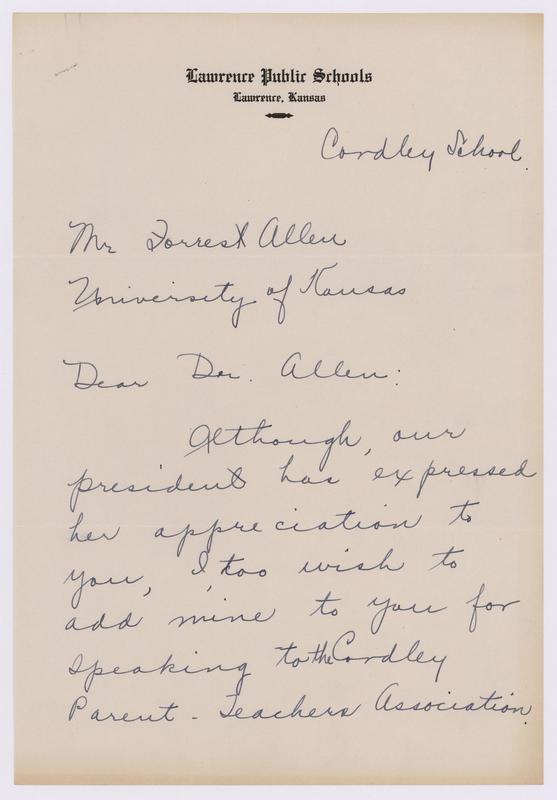 Lawrence Public Schools
Lawrence, Kansas
Cordley School.
Mr Forrest Allen
University of Kansas
Dear Dr. Allen:
Although, our
president has expressed
her appreciation to
you, I, too wish to
add mine to you for
speaking to the Cordley
Parent - Teachers Association.